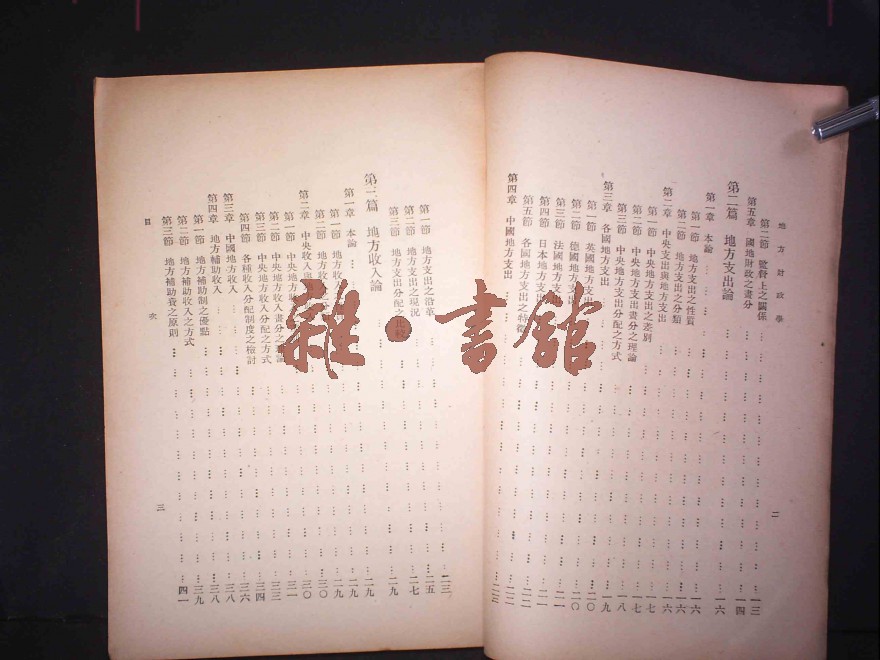 地方財政學
二
第二節 監督上之關係 一三
第五章 國地財政之畫分 一四
第二篇 地方支出論
第一章 本論 一六
第一節 地方支出之性質 一六
第二節 地方支出之分類 一六
第二章 中央支出與地方支出 一六
第一節 中央地方支出之差別 一七
第二節 中央地方支出畫分之理論 一七
第三節 中央地方支出分配之方式 一八
第三章 各國地方支出 一九
第一節 英國地方支出 二〇
第二節 德國地方支出 二〇
第三節 法國地方支出 二一
第四節 日本地方支出 二一
第五節 各國地方支出之特徵 二二
第四章 中國地方支出 二三
第一節 地方支出之沿革 二三
第二節 地方支出之現況 二五
第三節 地方支出分配之比較 二七
第三篇 地方收入論 二九
第一章 本論 二九
第一節 地方收 二九
第二節 地方收入之 二九
第二章 中央收入與 三〇
第一節 中央地方收 三〇
第二節 中央地方收入畫分之 三一
第三節 中央地方收入分配之方式 三三
第四節 各種收入分配制度之檢討 三四
第三章 中國地方收入 三六
第四章 地方補助收入 三八
第一節 地方補助制之優點 三八
第二節 地方補助收入之方式 三九
第三節 地方補助費之原則 四一
目次
三
雜·書館